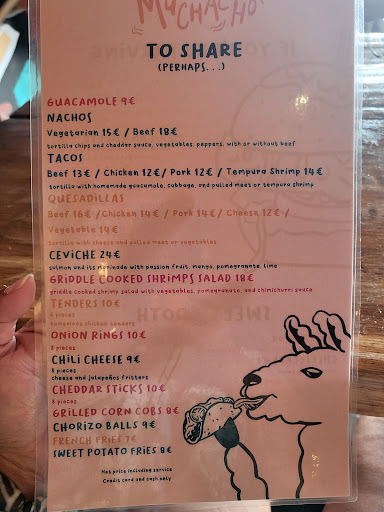 MUCHACHO
TO SHARE
(PERHAPS...)
GUACAMOLE 9€
NACHOS
Vegetarian 15€ / Beef 18€
tortilla chips and cheddar sauce, vegetables, peppers, with or without beef
TACOS
Beef 13€ / Chicken 12€/ Pork 12€ / Tempura Shrimp 14€
tortilla with homemade guacamole, cabbage, and pulled meat or tempura shrimp
QUESADILLAS
Beef 16€ /Chicken 14€ / Pork 14€/ Cheese 12€ /
Vegetable 14€
tortilla with cheese and pulled meat or vegetables
CEVICHE 24€
salmon and its marinade with passion fruit, mango, pomegranate, lime
GRIDDLE COOKED SHRIMPS SALAD 18€
griddle cooked shrimp salad with vegetables, pomegranate, and chimichurri sauce
TENDERS 10€
6 pieces
homemade chicken tenders
ONION RINGS 10€
8 pieces
CHILI CHEESE 9€
8 pieces
cheese and jalapeños fritters
CHEDDAR STICKS 10€
8 pieces
GRILLED CORN COBS 8€
CHORIZO BALLS 9€
FRENCH FRIES 7€
SWEET POTATO FRIES 8€
Net price including service
Credit card and cash only